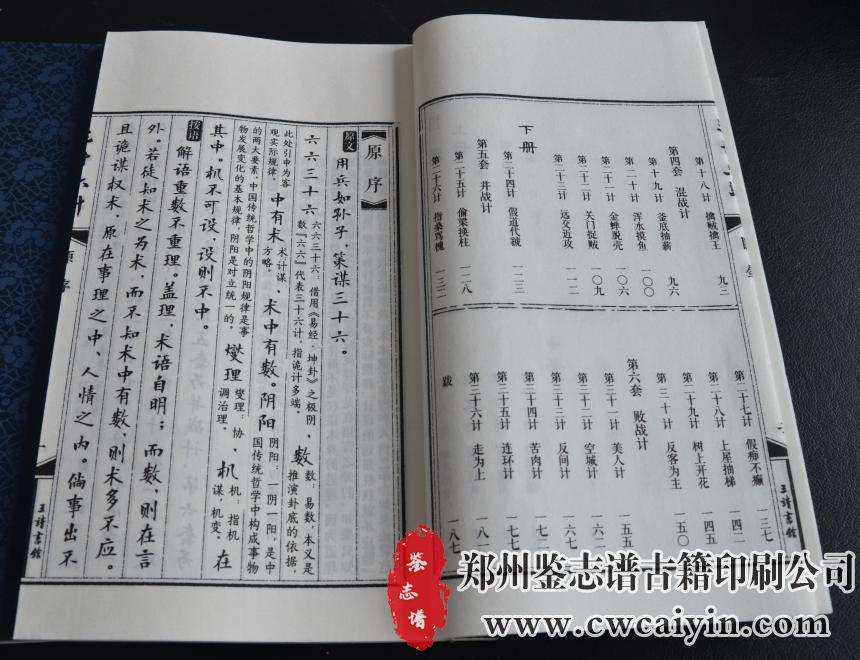 第十八计 擒贼擒王 九三
第四套 混战计
第十九计 釜底抽薪 九六
第二十计 浑水摸鱼 一〇〇
第二十一计 金蝉脱壳 一〇六
第二十二计 关门捉贼 一〇九
第二十三计 远交近攻 一一二
下册
第二十四计 假道伐虢 一二三
第五套 并战计
第二十五计 偷梁换柱 一二八
第二十六计 指桑骂槐 一三二
第二十七计 假痴不癫 一三七
第二十八计 上屋抽梯 一四二
第二十九计 树上开花 一四五
第三十计 反客为主 一五〇
第六套 败战计
第三十一计 美人计 一五五
第三十二计 空城计 一六二
第三十三计 反间计 一六七
第三十四计 苦肉计
第三十五计 连环计 一七七
第三十六计 走为上 一八一
跋 一八七
三讀書館
《原序》
原文
用兵如孙子，策谋三十六。
六六三十六 六六三十六：借用《易经·坤卦》之极阴，数“六六”代表三十六计，指诡计多端。，數 数：易数，本义是推演卦底的依据，
此处引申为客观实际规律。中有术 术：计谋方略。，术中有數。阴阳 阴阳：一阴一阳，是中国传统哲学中构成事物
的两大要素。中国传统哲学中的阴阳规律是事物发展变化的基本规律，阴阳是对立统一的。燮理 燮理：协调治理。，机 机：指机谋，机变。在
其中。机不可设，设则不中。
按语
解语重數不重理。盖理，术语自明；而數，则在言
外。若徒知术之为术，而不知术中有數，则术多不应。
且诡谋权术，原在事理之中、人情之内。倘事出不
三讀書館
鉴志谱
郑州鉴志谱古籍印刷公司
www.cwcaiyin.com